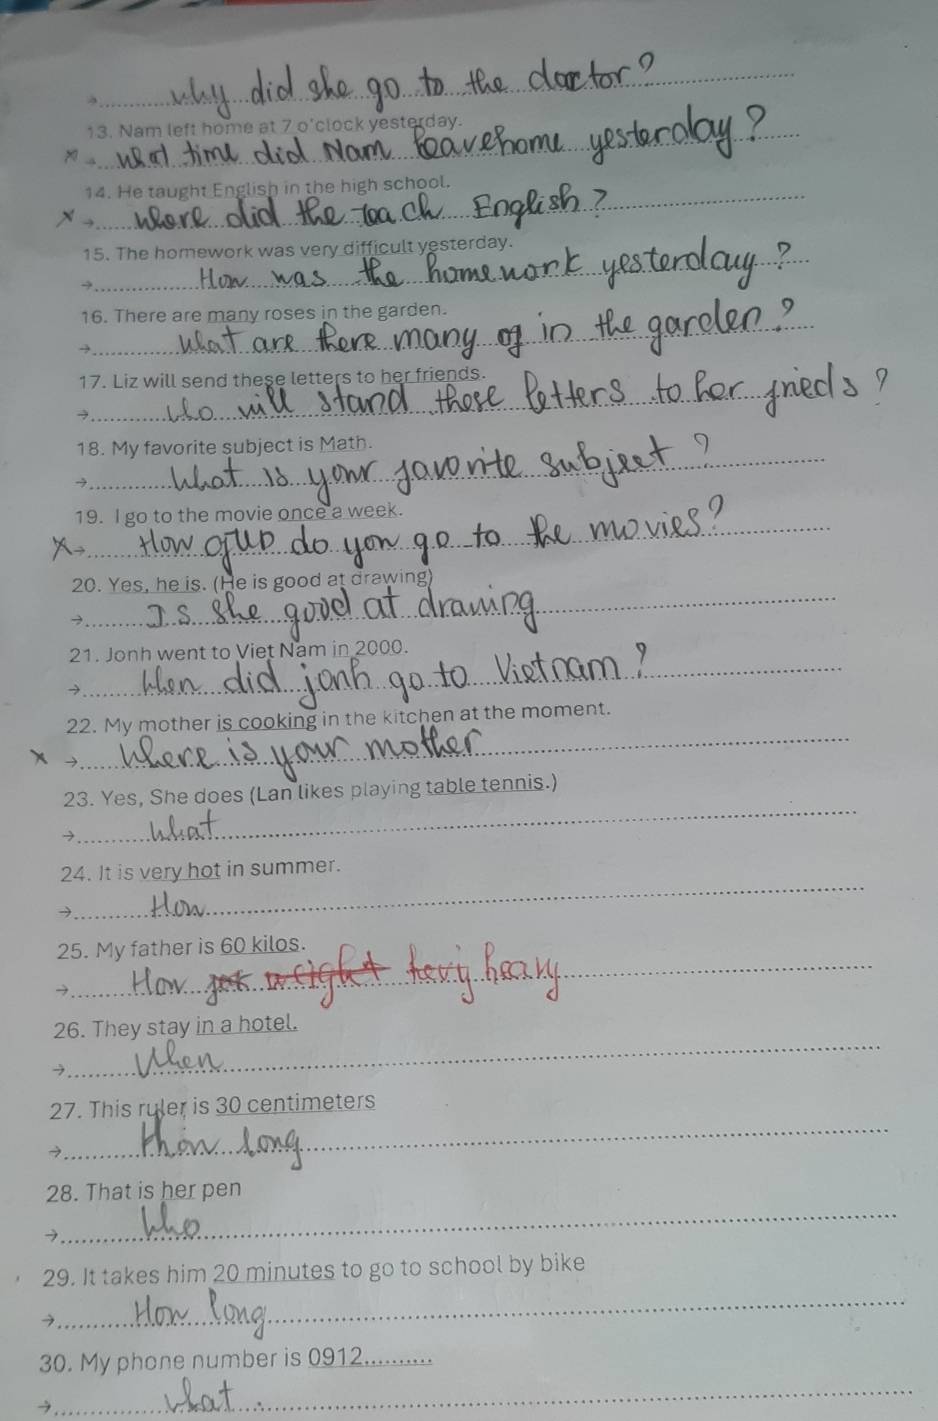 → why did she go to the doctor?
13. Nam left home at 7 o'clock yesterday.
x → what time did Nam leavehome yesterday?
14. He taught English in the high school.
x → where did the teach English?
15. The homework was very difficult yesterday.
→ How was the homework yesterday?
16. There are many roses in the garden.
→ what are there many of in the garden?
17. Liz will send these letters to her friends.
→ who will stand those letters to her frieds?
18. My favorite subject is Math.
→ What is your favorite subject?
19. I go to the movie once a week.
x → How do you go to the movies?
20. Yes, he is. (He is good at drawing)
→ Is she good at drawing
21. Jonh went to Viet Nam in 2000.
→ When did jonh go to Vietnam?
22. My mother is cooking in the kitchen at the moment.
x → Where is your mother
23. Yes, She does (Lan likes playing table tennis.)
→ What
24. It is very hot in summer.
→ How
25. My father is 60 kilos.
→ How weight hevy heavy
26. They stay in a hotel.
→ When
27. This ruler is 30 centimeters
→ How long
28. That is her pen
→ Who
29. It takes him 20 minutes to go to school by bike
→ How long
30. My phone number is 0912..........
→ what